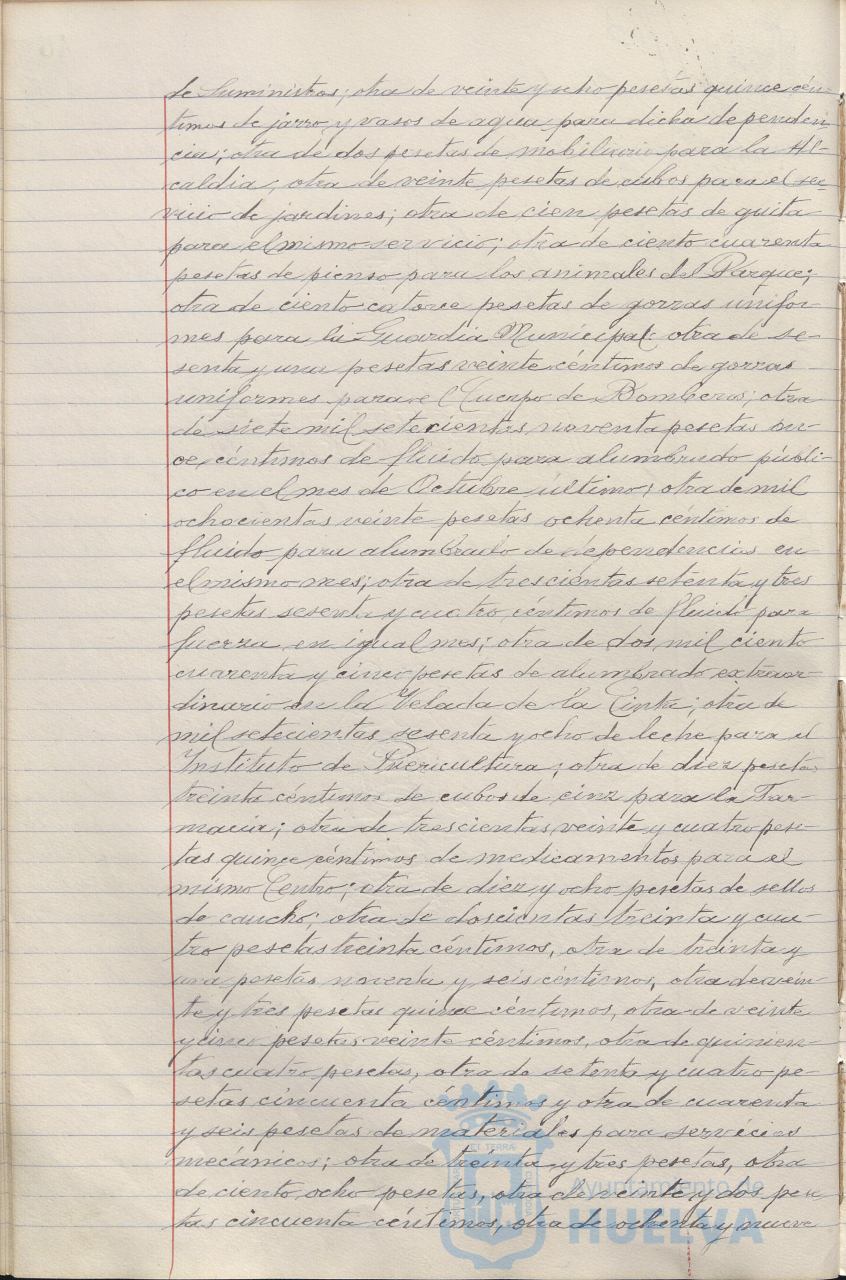 de Suministros; otra de veinte y ocho pesetas quince cén-
timos de jarro y vasos de agua para dicha dependen-
cia; otra de dos pesetas de mobiliario para la Al-
caldia; otra de veinte pesetas de cubos para el ser-
vicio de jardines; otra de cien pesetas de guita
para el mismo servicio; otra de ciento cuarenta
pesetas de pienso para los animales del Parque;
otra de ciento catorce pesetas de gorras unifor-
mes para la Guardia Municipal: otra de se-
senta y una pesetas veinte céntimos de gorras
uniformes para el Cuerpo de Bomberos; otra
de siete mil setecientas noventa pesetas on-
ce céntimos de fluido para alumbrado públi-
co en el mes de Octubre último; otra de mil
ochocientas veinte pesetas ochenta céntimos de
fluido para alumbrado de dependencias en
el mismo mes; otra de trescientas setenta y tres
pesetas sesenta y cuatro céntimos de fluido para
fuerza en igual mes; otra de dos mil ciento
cuarenta y cinco pesetas de alumbrado extraor-
dinario en la Velada de la Cinta; otra de
mil setecientas sesenta y ocho de leche para el
Instituto de Puericultura; otra de diez pesetas
treinta céntimos de cubos de cinz para la Far-
macia; otra de trescientas veinte y cuatro pese-
tas quince céntimos de medicamentos para el
mismo Centro; otra de diez y ocho pesetas de sellos
de caucho; otra de doscientas treinta y cua-
tro pesetas treinta céntimos, otra de treinta y
una pesetas noventa y seis céntimos, otra de vein-
te y tres pesetas quince céntimos, otra de veinte
y cinco pesetas veinte céntimos, otra de quinien-
tas cuatro pesetas, otra de setenta y cuatro pe-
setas cincuenta céntimos y otra de cuarenta
y seis pesetas de materiales para servicios
mecánicos; otra de treinta y tres pesetas, otra
de ciento ocho pesetas, otra de veinte y dos pese
tas cincuenta céntimos, otra de ochenta y nueve
Ayuntamiento de
HUELVA